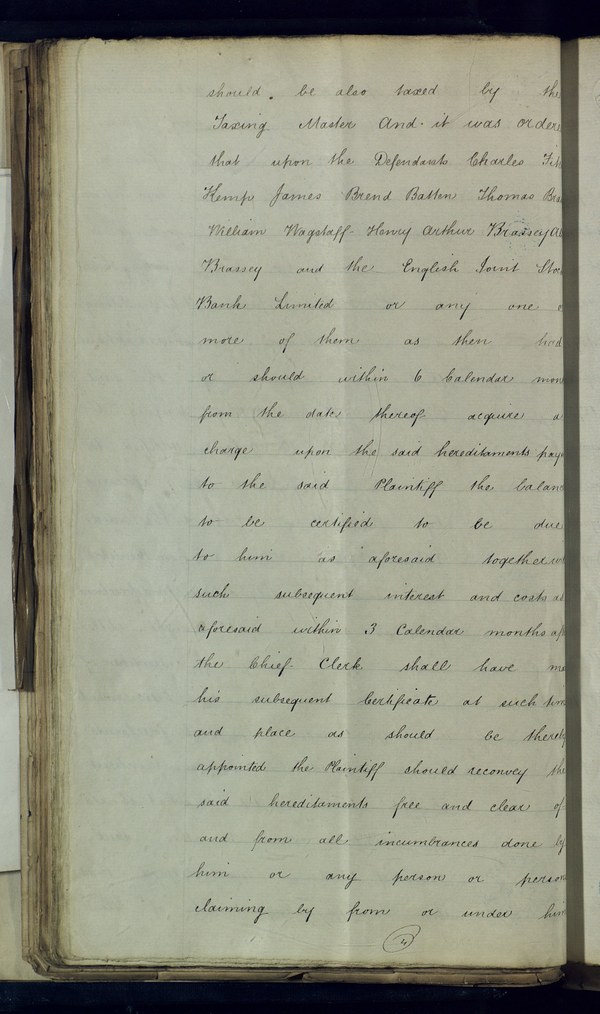 should be also taxed by the
Taxing Master And it was ordere
that upon the Defendants Charles
Kemp James Brend Batten Thomas
William Wagstaff Henry Arthur Brassey
Brassey and the English Joint Stoc
Bank Limited or any one
more of them as then had
or should within 6 Calendar mon
from the date thereof acquire a
charge upon the said hereditaments pay
to the said Plaintiff the balan
to be certified to be due
to him as aforesaid together
such subsequent interest and costs as
aforesaid within 3 Calendar months
the Chief Clerk shall have
his subsequent Certificate at such
and place as should be thereby
appointed the Plaintiff should reconvey the
said hereditaments free and clear of
and from all incumbrances done by
him or any person or person
claiming by from or under him